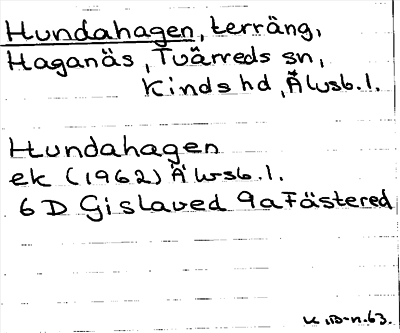 Hundahagen, terräng,
Haganäs, Tvärreds sn,
Kinds hd, Älvsb. l.
Hundahagen
ek (1962) Älvsb. l.
6 D Gislaved 9a Fästered